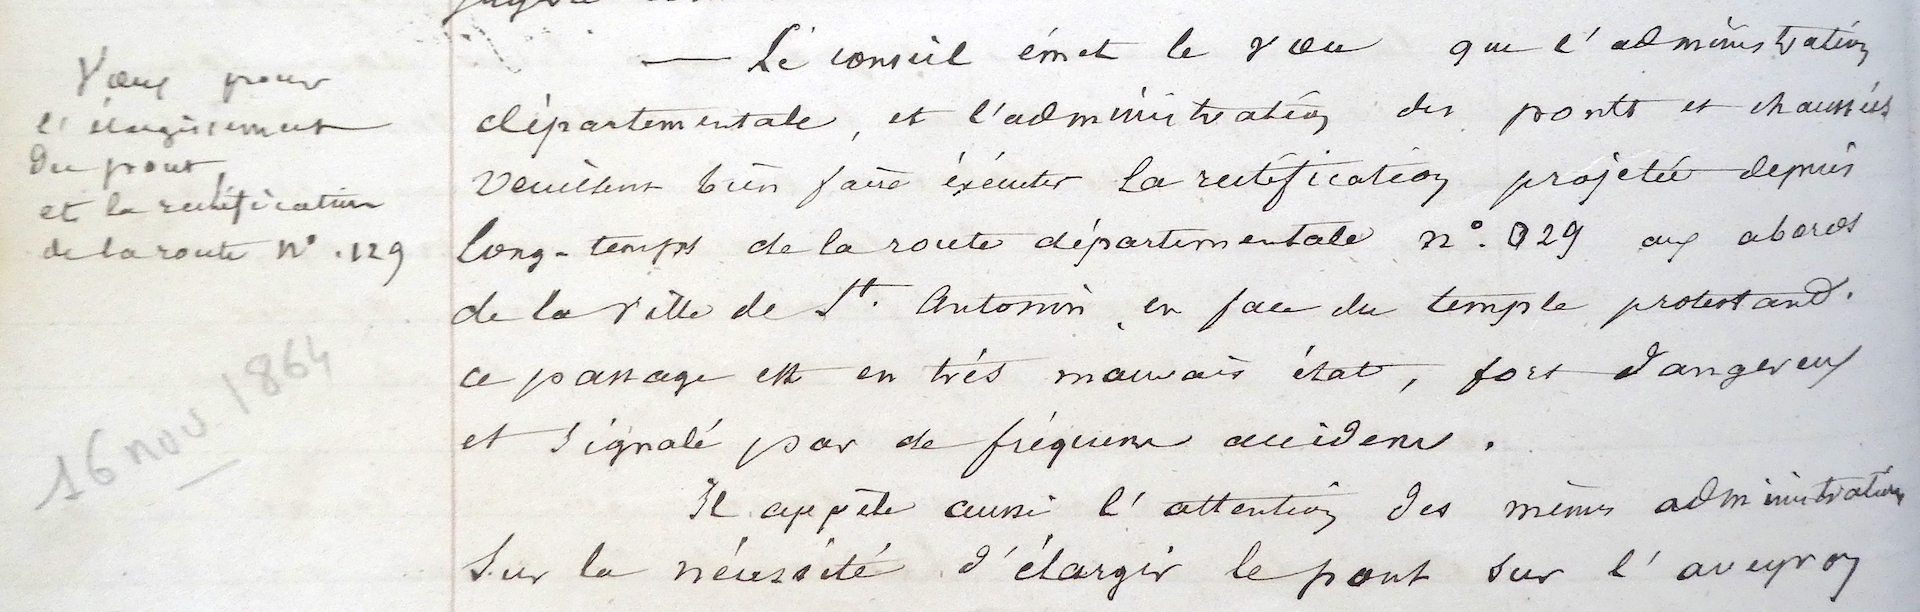 Vœux pour
l'élargissement
du pont
et la rectification
de la route N° .129
16 nov 1864
— Le conseil émet le vœu que l'administration
départementale, et l'administration des ponts et chaussées
veuillent bien faire éxécuter la rectification projetée depuis
long-temps de la route départementale n°. 129 aux abords
de la ville de St. Antonin, en face du temple protestand.
ce passage est en trés mauvais état, fort dangereux
et signalé par de fréquens accidens.
Il appèle aussi l'attention des mêmes administrations
sur la nécessité d'élargir le pont sur l'aveyron